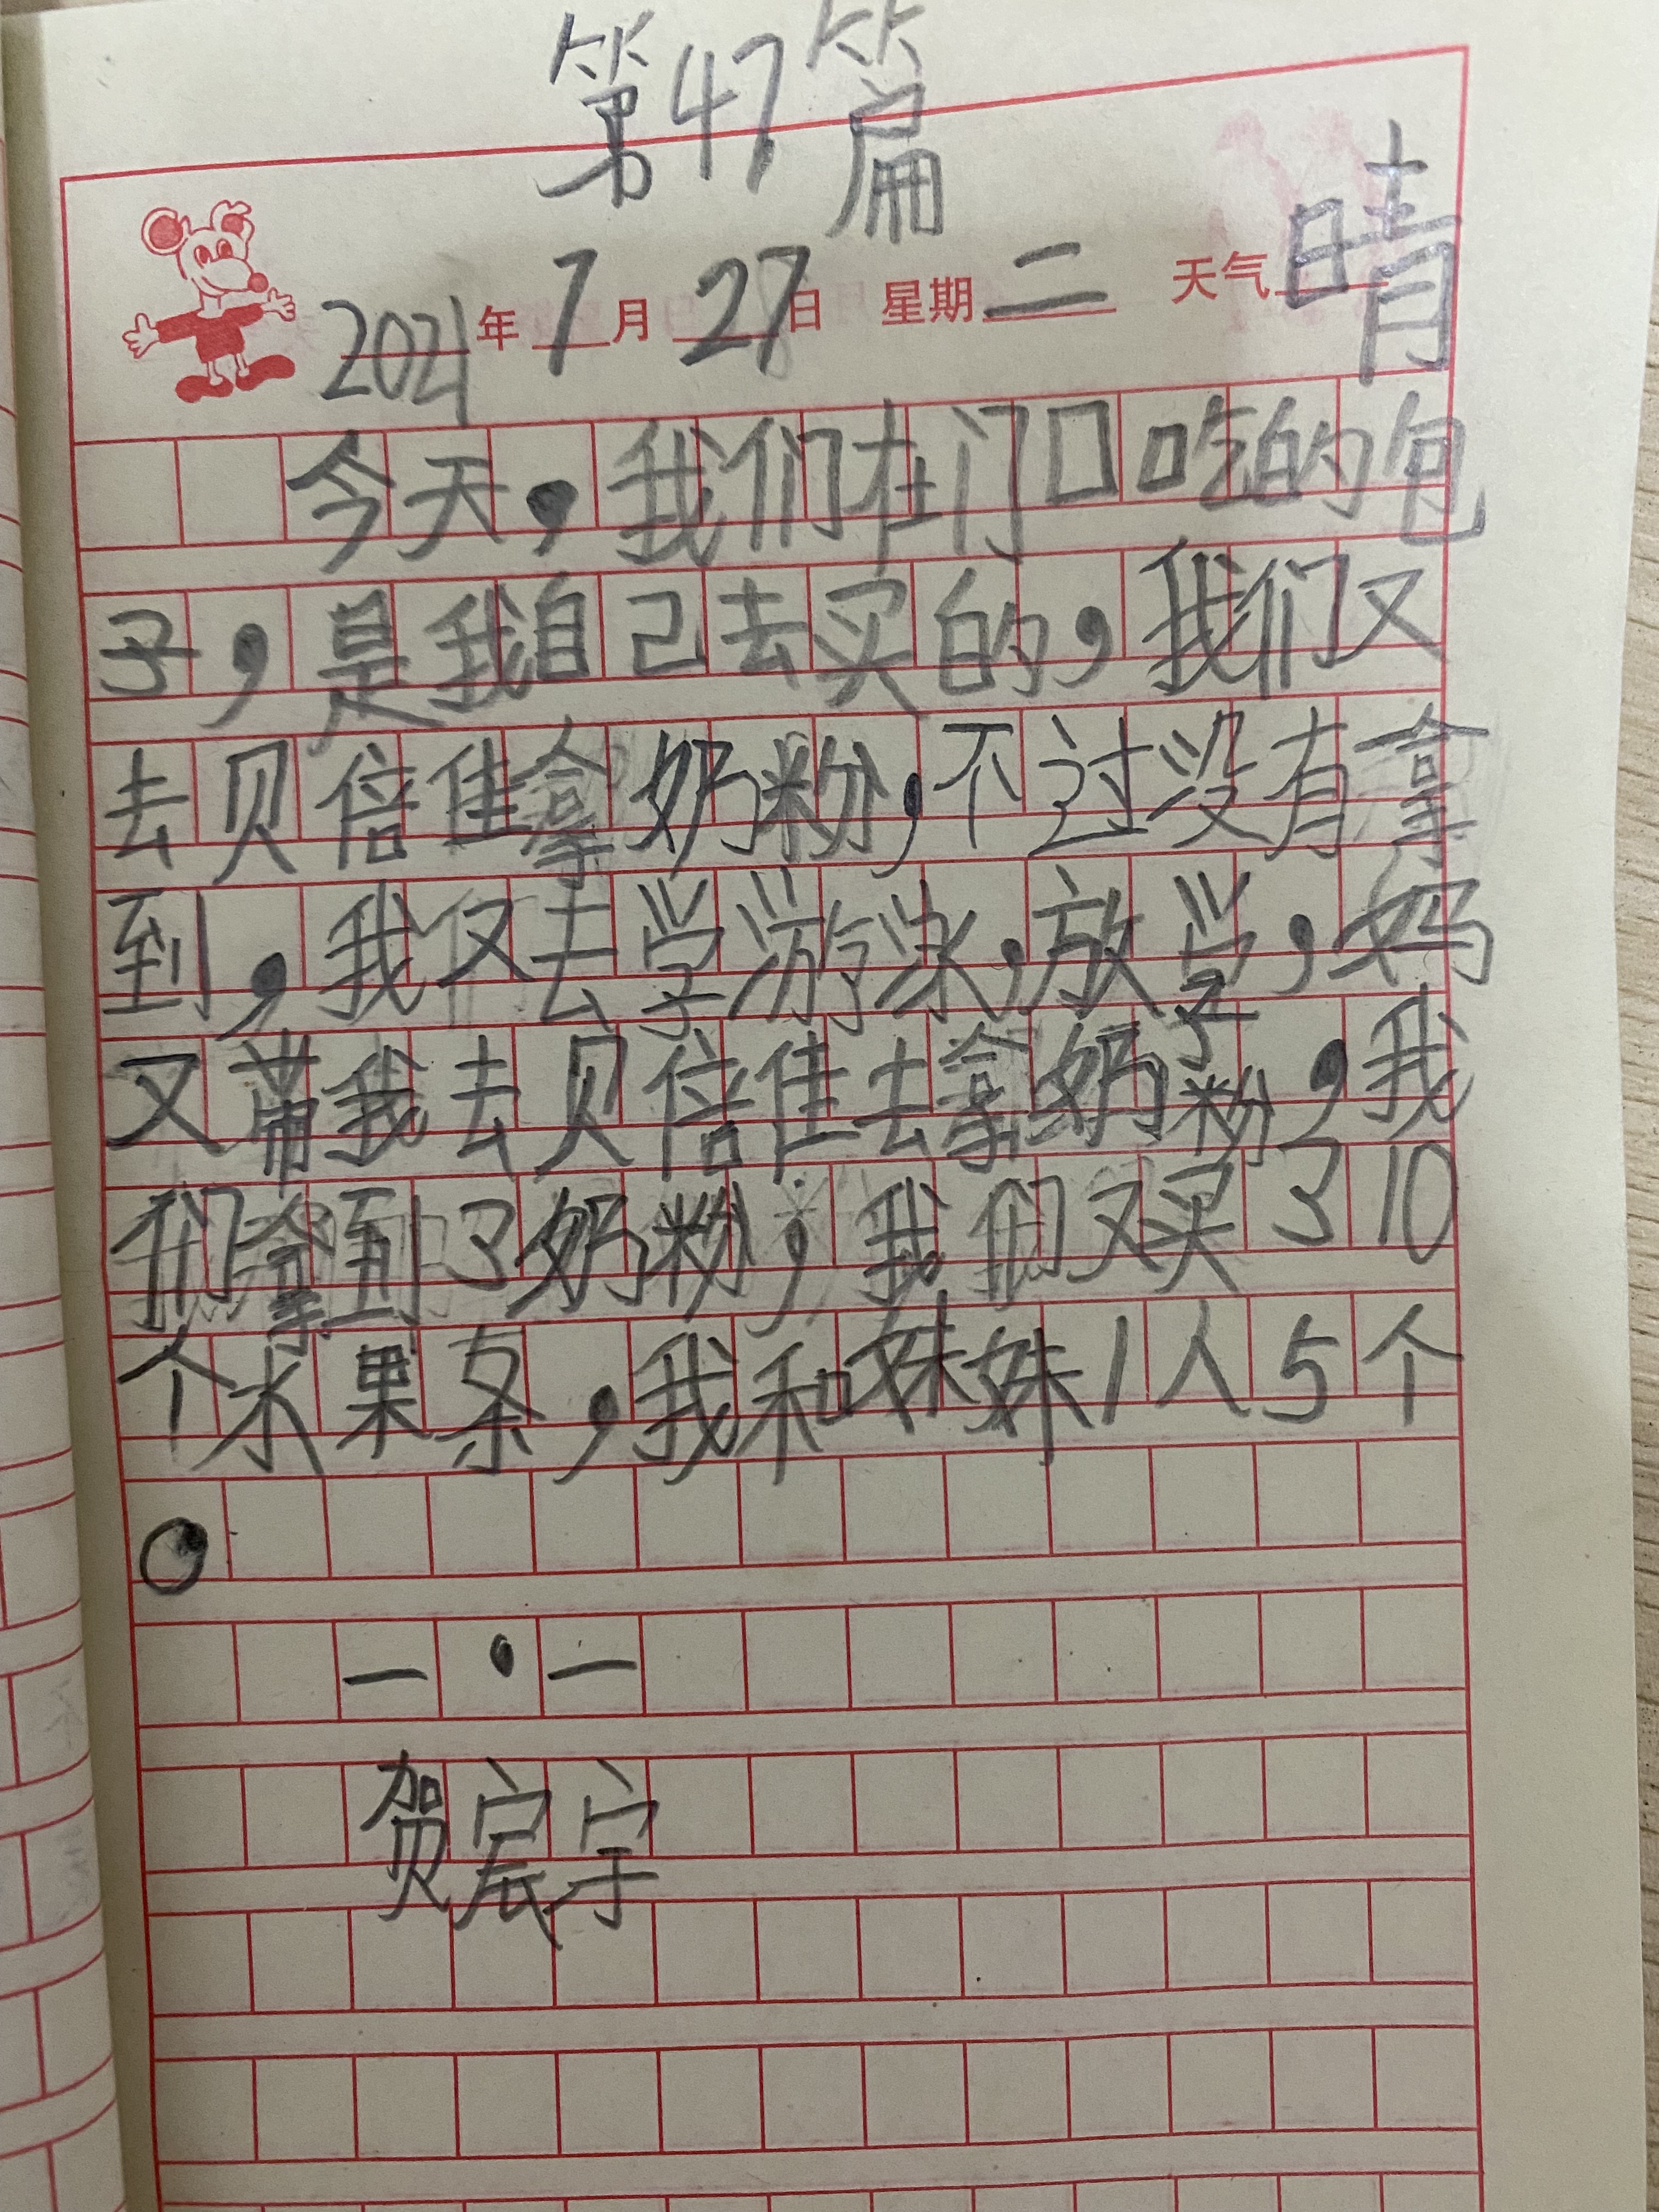 第47篇
2021年7月27日 星期二 天气晴
今天，我们在门口吃的包
子，是我自己去买的，我们又
去贝倍佳拿奶粉，不过没有拿
到，我又去学游泳，放学，妈
又带我去贝倍佳去拿奶粉，我
们拿到了奶粉，我们又买了10
个水果条，我和妹妹1人5个
。
一·一
贺宸宇